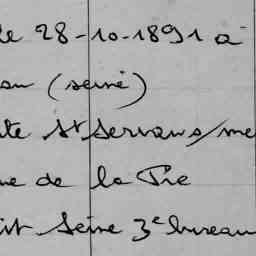 le 28-10-1891 à
on (seine)
ite St Servans/me
ue de la Pie
it Seine 3e bureau